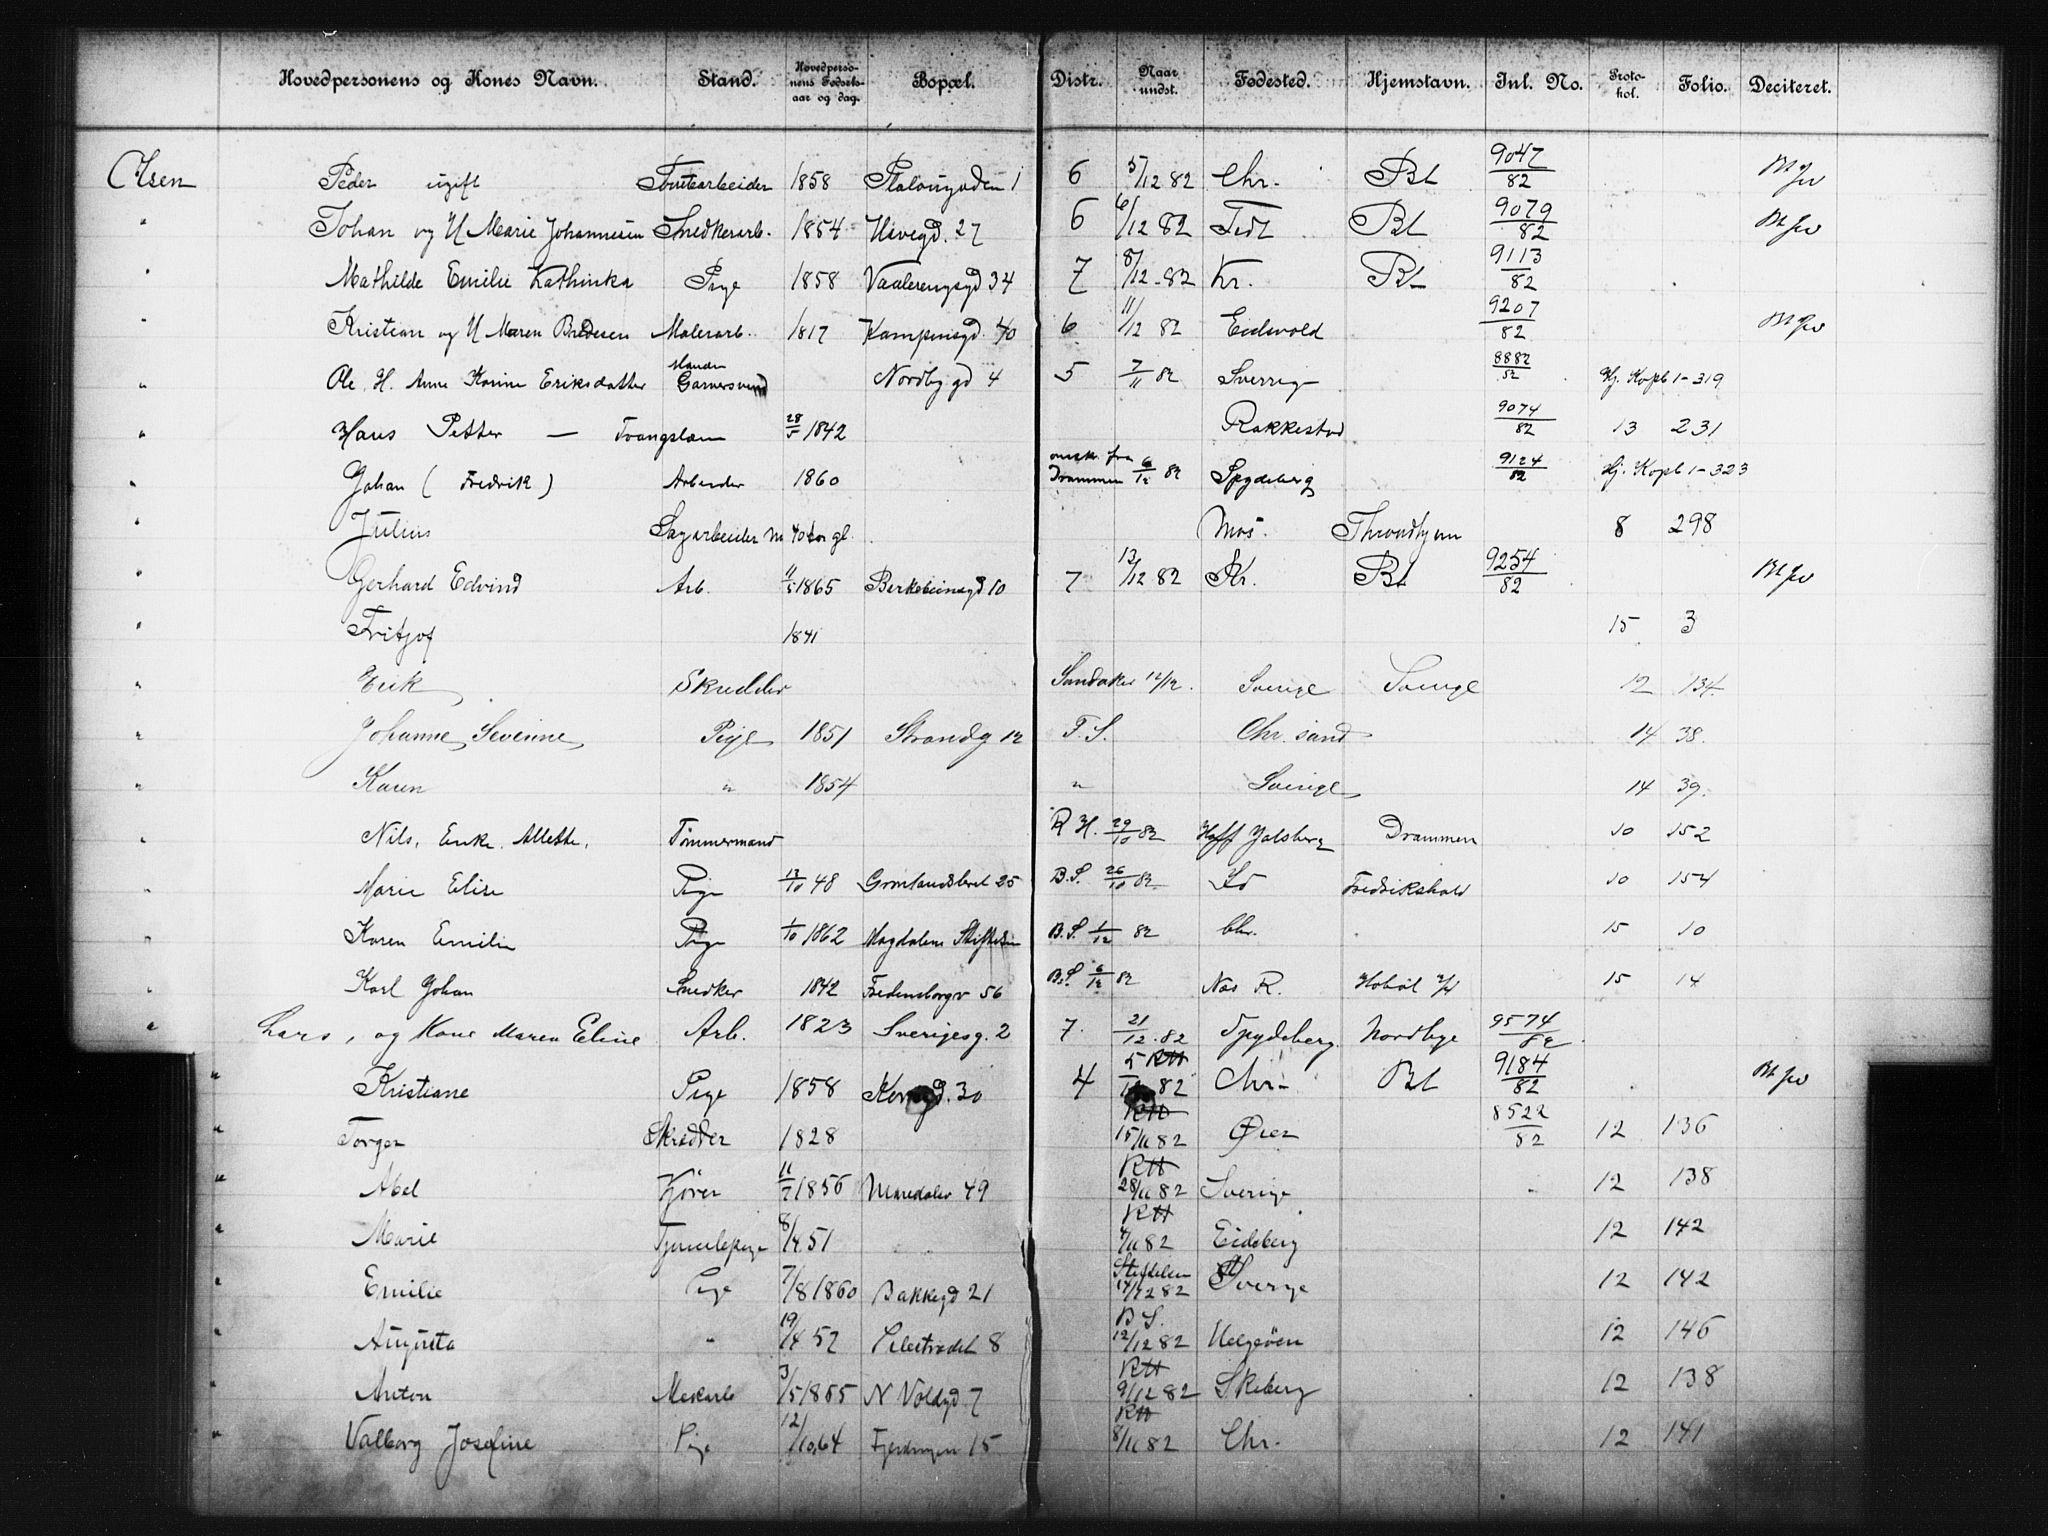 Hovedpersonens og Kones Navn. Stand. Hovedpersonens Fødselsaar og dag. Bopæl. Distr. Naar undst. Fødested. Hjemstavn. Inl. No. Protokol. Folio. Deciteret.
Olsen Peder ugift 1858 1 6 5/12 82 Chr. Bl 9047/82
" Johan og H Marie Johannesen Snedkerarb. 1854 27 6 6/12 82 Bl 9079/82
" Mathilde Emilie Kathinka Pige 1858 Vaalerengsgd 34 7 8/12 82 Kr. Bl 9113/82
" Kristian og H Maren Bredesen Malerarb. 1817 Kampensgd. 40 6 11/12 82 Eidsvold 9207/82
" Ole. H. Anne Karine Eriksdatter Garversvend Nordbygd 4 5 7/11 82 Sverrig 8882/82 Hj. Kopb 1-319
" Hans Petter — Tvangslem 28/5 1842 Rakkestad 9074/82 13 231
" Johan (Fredrik) Arbeider 1860 Drammen 6/12 82 Spydeberg 9124/82 Hj. Kopb 1-323
" Julius Sagarbeider Mos. Throndhjem 8 298
" Gerhard Edvind Arb. 11/5 1865 Berkebeinsgd 10 7 13/12 82 Kr. Bl 9254/82
" Fritjof 1841 15 3
" Erik Skredder Sandaker 12/12. Sverige Sverige 12 134.
" Johanne Severine Pige 1851 Strandg 12 F. S. Chr. sand 14 38.
" Karen " 1854 " Sverige 14 39.
" Nils, Enke. Allette. Tømmermand R H. 29/10 82 Hoff Jalsberg Drammen 10 152
" Marie Elise Pige 13/10 48 Grønlandsleret 25 B. S. 26/10 82 Id Fredrikshald 10 154
" Karen Emilie Pige 1/10 1862 Magdalene Stiftelsen B. S. 1/12 82 Chr. 15 10
" Karl Johan Snedker 1842 Fredensborgv 56 B. S. 6/12 82 Nes R. Hobøl 15 14
" Lars, og Kone Maren Eline Arb. 1823 Sverigesg. 2 7. 21/12. 82 Spydeberg. Nordbye 9574/82
" Kristiane Pige 1858 30 4 RH 82 Chr. Bl 9184/82
" Torger Skredder 1828 RH 15/11 82 Øier 8522/82 12 136
" Abel 11/7 1856 Maridalsv 49 RH 28/11 82 Sverige 12 138
" Marie Tjenestepige 8/4 51 RH 4/11 82 Eidsberg 12 142
" Emilie Pige 7/8 1860 Bakkegd 21 Stiftelsen 14/12 82 Sverge 12 142
" Augusta " 19/4 52 Pilestrædet 8 B S. 12/12 82 Helgeøen 12 146
" Anton Mekarb 3/5 1855 N Voldgd 7 RH 9/12 82 Skeberg 12 138
" Valborg Josefine Pige 12/10 64 Fjerdingen 15 RH 8/11 82 Chr. 12 141